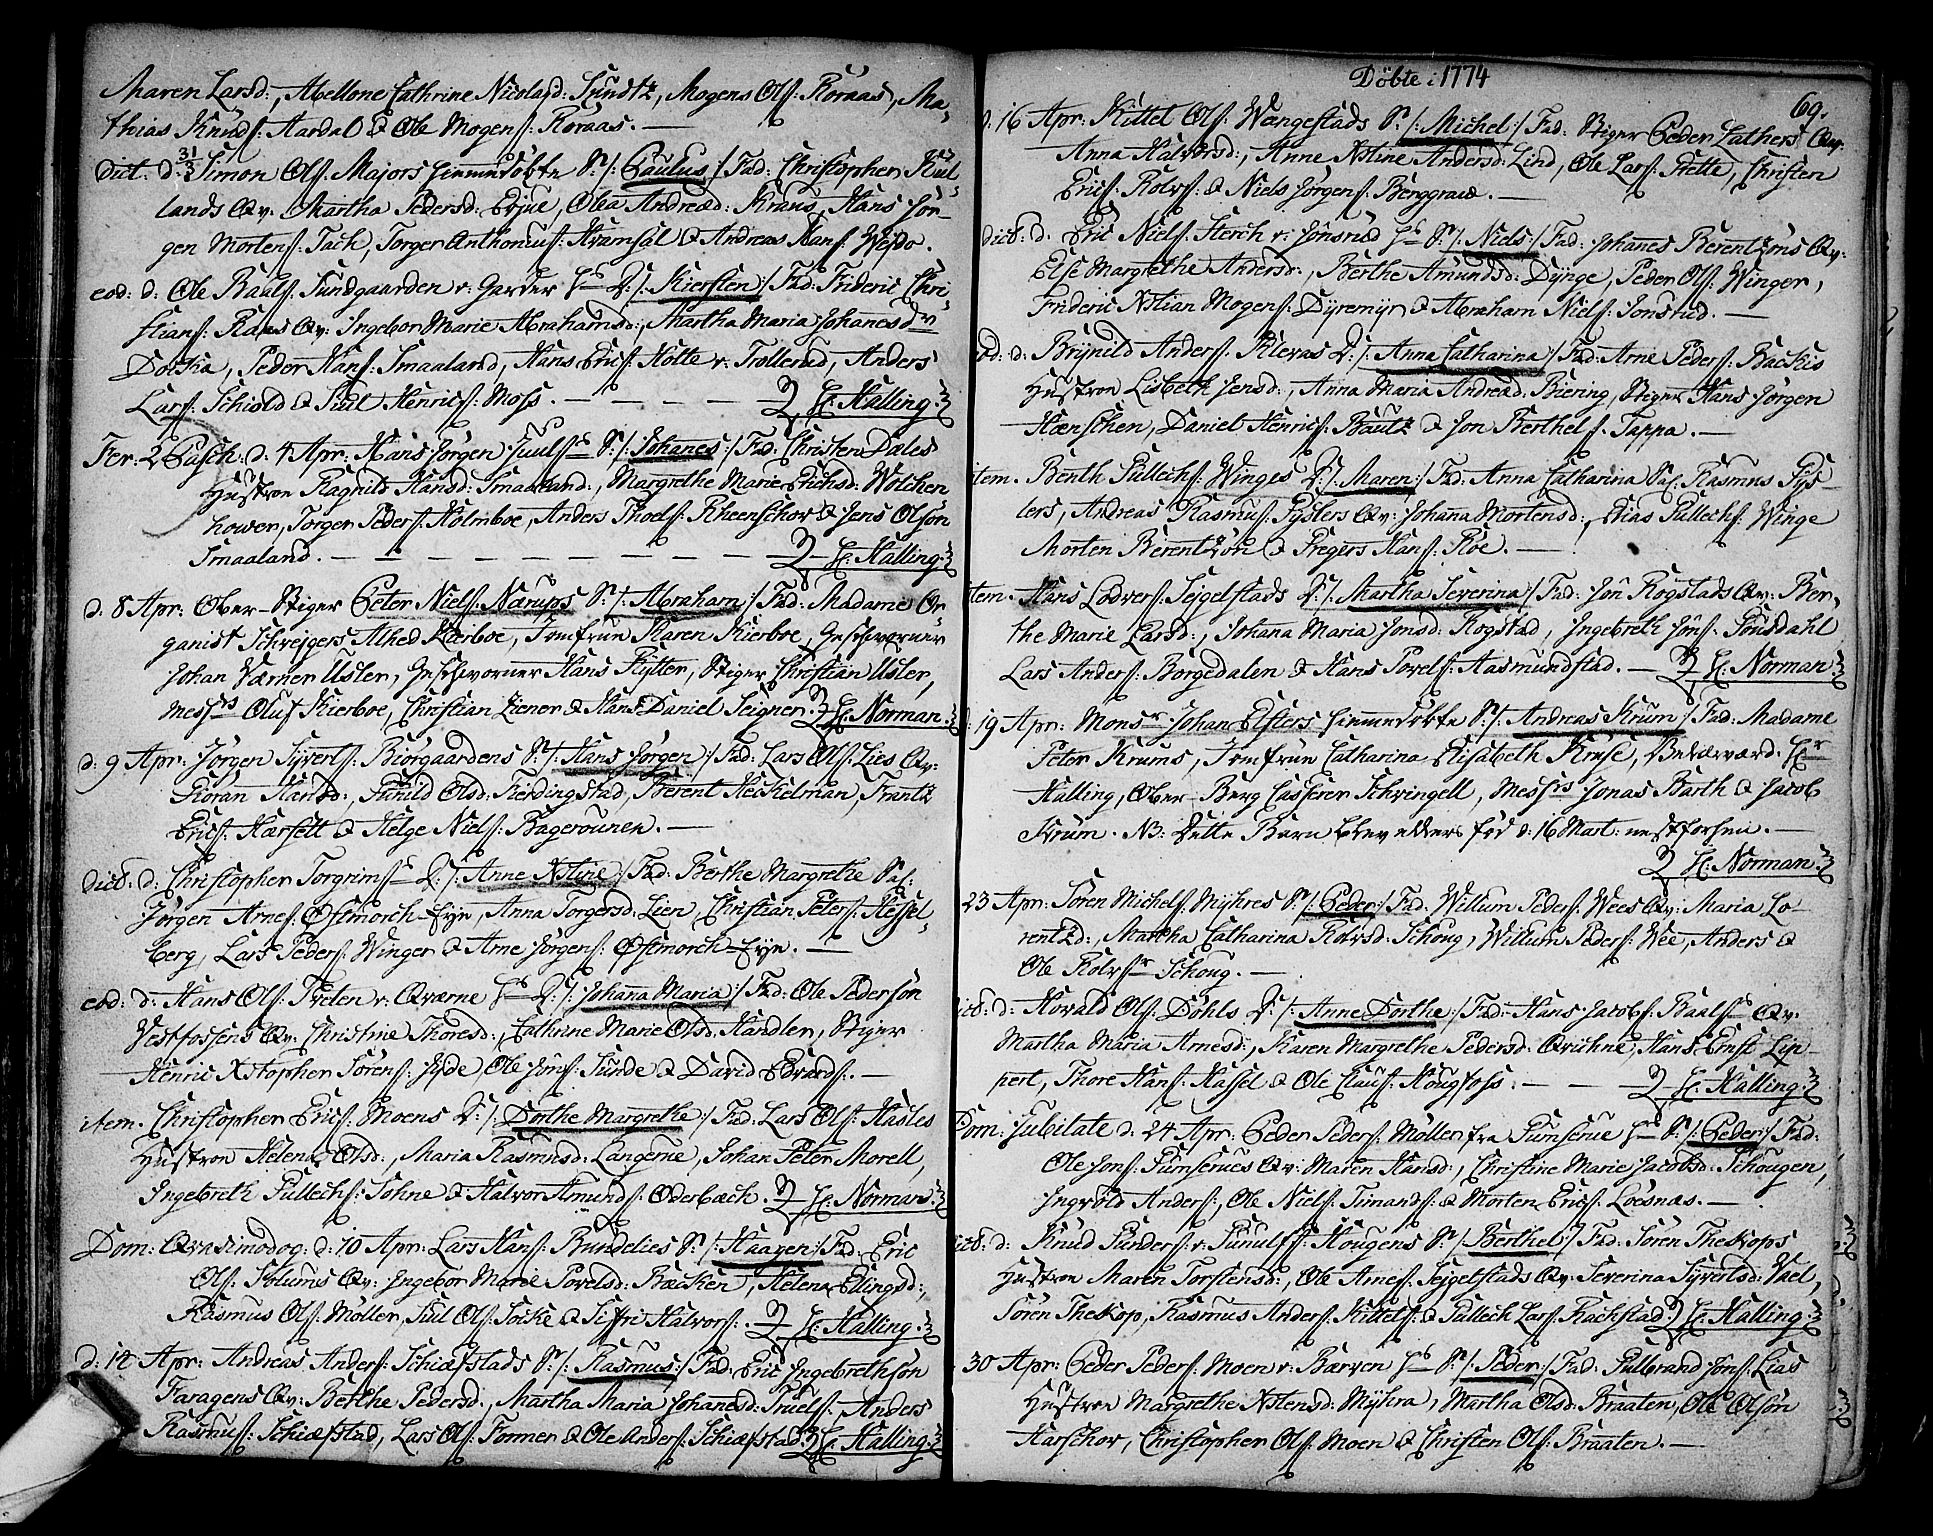 Maren Larsd:, Abellone Cathrine Nicolad: Sundtz, Mogens Ols: Koraas, Ma-
thias Knuds: Aardal & Ole Mogens: Koraas. —
dict. d: 31/3 Simon Ols. Majors hiemmedöbte S: /: Paulus :/ Fad: Christopher Kul-
lands Qv: Martha Pedersd: Erjue, Olea Andread: Krans, Hans Jör-
gen Mortens: Tach, Torger Anthonius: Kramsal & Andreas Hans: Wejdo.
eod: d: Ole Baals: Sundgaarden v: Garver H: D: /: Kiersten :/ Fad: Frideric Chri-
stians: Raaes Qv: Ingebor Marie Abrahamsd:, Martha Maria Johanesdr
Docka, Peder Hans: Smaaland, Hans Erics: Holte v: Trollerud, Anders
Lars: Schiold & Juul Henrics: Moss. — — — — H: Halling.
Fer: 2 Pasch: d: 4 Apr: Hans Jörgen Juuls: S: /: Johanes :/ Fad: Christen Dales
Hustroe Ragnild Hansd: Smaaland:, Margrethe Marie Erichsd: Wolchen
hower, Torger Peders: Holmboe, Anders Thoes: Rheenschov & Jens Olsön
Smaaland. — — — — — — — H: Halling.
d: 8 Apr: Ober-Stiger Peter Niels: Nærups S: /: Abraham :/ Fad: Madame Or-
ganist Schrejgers Alhed Kierboe, Jomfrue Karen Kierboe, Geschworner
Johan Værner Usler, Geschworner Hans Flytter, Stiger Christian Usler,
Messrs Oluf Kierboe, Christian Ziener & Hans Daniel Seigner. H: Norman.
d: 9 Apr: Jörgen Syverts: Biörgaardens S: /: Hans Jörgen :/ Fad: Lars Ols: Lies Qv:
Göran Hansd:, Gunild Olsd: Fierdingstad, Berent Heickelman, Frantz
Erics: Harsett & Helge Niels: Bagerounen. —
dict: d: Christopher Torgrims: D: /: Anne Xstine :/ Fad: Berthe Margrethe Sal:
Jörgen Arnes: Ostmorch-Eyn, Anna Torgersd: Lien, Christian Peters: Hessel-
berg, Lars Peders: Winger & Arne Jörgens: Ostmorch-Eyn. —
eod: d: Hans Ols: Tveten v: Qværne H: D: /: Johana Maria :/ Fad: Ole Pedersön
Vestfossens Qv: Christine Thoresd:, Cathrine Marie Olsd: Handler, Stiger
Henric Xstopher Sörens: Hyde, Ole Jöns: Sunde & David Edvards:. —
item. Christopher Erics: Moens D: /: Dorthe Margrethe :/ Fad: Lars Ols: Hasles
Hustroe Helena Olsd:, Maria Rasmusd: Langerue, Johan Peter Morell,
Ingebreth Gullechs: Sohne & Halvor Amunds: Oderbæch. H: Norman.
Dom: Qvasimodog: d: 10 Apr: Lars Hans: Bundelies S: /: Haagen :/ Fad: Eric
Ols: Kolums Qv: Ingebor Marie Povelsd: Bæcken, Helena Ellingsd:,
Rasmus Ols: Möller, Juul Ols: Socke & Siffri Halvors:. H: Halling.
d: 14 Apr: Andreas Anders: Schiæfstads S: /: Rasmus :/ Fad: Eric Ingebrethsön
Faragens Qv: Berthe Pedersd:, Martha Maria Johanesd: Truels:, Anders
Rasmus: Schiæfstad, Lars Ols: Fonner & Ole Anders: Schiæfstad. H: Halling.
Döbte i 1774
69.
d: 16 Apr: Kittel Ols: Wængestads S: /: Michel :/ Fad: Stiger Peder Lathers Qv:
Anna Halvorsd:, Anne Xstine Andersd: Lind, Ole Lars: Flette, Christen
Erics: Rolvs: & Niels Jörgens: Berggrav. —
dict: d. Eric Niels: Sterch v: Jonsrud H: S: /: Niels :/ Fad: Johanes Berentzöns Qv:
Else Margrethe Andersd:, Berthe Amundsd: Dynge, Peder Ols: Winger,
Frideric Xstian Mogens: Dyremyr & Abraham Niels: Jonsrud. —
d: d: Brynild Anders: Pilevas D: /: Anna Catharina :/ Fad: Arne Peders: Backes
Hustroe Lisbeth Jensd:, Anna Maria Andread: Biering, Stiger Hans Jörgen
Hænschen, Daniel Henrics: Bautz & Jon Berthels: Tappa. —
item. Benth Gullechs: Winges D: /: Maren :/ Fad: Anna Catharina Sal: Rasmus Gys-
lers, Andreas Rasmus: Gyslers Qv: Johana Mortensd:, Elias Gullechs: Winge
Morten Berentzön & Gregers Hans: Röe. —
item. Hans Lodvers: Sejgelstads D: /: Martha Severina :/ Fad: Jön Rogstads Qv: Ber-
the Marie Larsd:, Johana Maria Jonsd: Rogstad, Ingebreth Jöns: Jonsdahl
Lars Anders: Borgedalen & Hans Povels: Aasmundstad. — H: Norman.
19 Apr: Monsr Johan Elsters hiemmedöbte S: /: Andreas Krum :/ Fad: Madame
Peter Krums, Jomfrue Catharina Elisabeth Kruse, Velærværd: Hr
Halling, Ober-Berg Casserer Schvingell, Messrs Jonas Barth & Jacob
Krum. NB: Dette Barn blev ellers föd d: 16 Mart: nestforhen. —
H: Norman.
23 Apr: Sören Michels: Myhres S: /: Peder :/ Fad: Willum Peders: Wees Qv: Maria Lo-
rentzd:, Martha Catharina Rolvsd: Schoug, Willum Peders: Wee, Anders &
Ole Rolvs: Schoug. —
dict: d: Hovald Ols: Dohls D: /: Anne Dorthe :/ Fad: Hans Jacobs: Baals: Qv.
Martha Maria Arnesd:, Karen Margrethe Pedersd: Qvichne, Hans Ernst Lip-
pert, Thore Hans: Hassel & Ole Claus: Hougfoss: — — H: Halling.
Dom: Jubilate d: 24 Apr: Peder Peders: Möller fra Gunserue H: S: /: Peder :/ Fad:
Ole Jons: Gunserues Qv: Maren Hansd:, Christine Marie Jacobsd: Schougen,
Ingvold Anders:, Ole Niels: Timands: & Morten Erics: Loesnæs. —
dict: d: Knud Gunders: v: Gunuls: Hougens S: /: Berthel :/ Fad: Sören Theskops
Hustroe Maren Torstensd:, Ole Arnes: Sejgelstads Qv: Severina Syvertsd: Vael,
Sören Theskop, Rasmus Anders: Kittels: & Gullech Lars: Rachstad. H: Halling.
30 Apr: Peder Peders: Moen v: Barven H: S: /: Peder :/ Fad: Gulbrand Jöns: Lias
Hustroe Margrethe Xstensd: Myhra, Martha Olsd: Braaten, Ole Olsön
Harschov, Christopher Ols: Moen & Christen Ols: Braaten. —